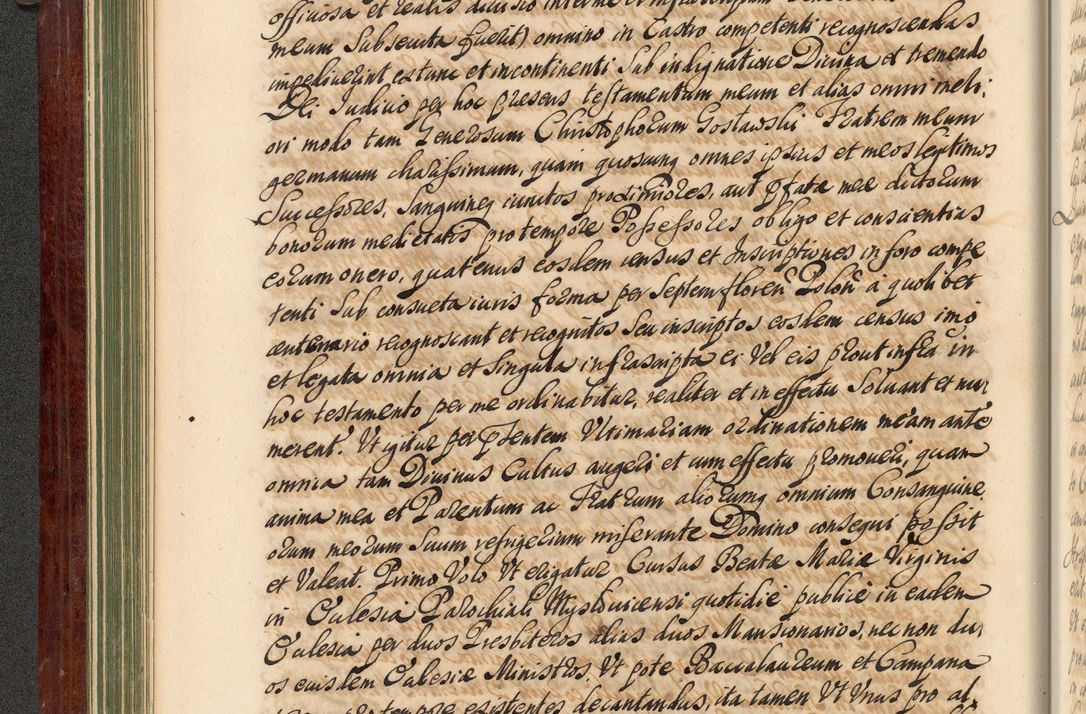 officiosa et realis divisio interme et infrascriptum
meum Subsecuta fuerit) omnino in Castro competenti recognoscendas
impediverint, extunc et in continenti Sub indignatione Divina et tremendo
Dei Iudicio per hoc presens testamentum meum et alias omni meli,
ori modo tam Generosum Christophorum Goslawski Fratrem meum
germanum charissimum, quam quosung omnes ipsius et meos legitimos
Successores, Sanguineq iunctos proximiores, aut pfatæ meæ dictorum
bonorum medietatis pro tempore Possessores obligo et conscientias
eorum onero, quatenus eosdem census et Inscriptiones in foro compe
tenti Sub consueta iuris forma per Septem floren Polon à quolibet
centenario recognoscant et recognitos Seu inscriptos eosdem census imo
et legata omnia et Singula infrascripta ei Vel eis prout infra in
hoc testamento per me ordinabitur, realiter et in effectu Solvant et nu,
merent. Ut igitur per psentem Ultimariam ordinationem meam ante
omnia tam Divinus Cultus augeri et cum effectu promoveri, quam
anima mea et Parentum ac Fratrum aliorumq omnium Consanguine,
orum meorum Suum refrigerium miserante Domino consequi possit
et Valeat. Primo Volo Ut erigatur Cursus Beatæ Mariæ Virginis
in Ecclesia Parochiali Myslovicensi quotidie publice in eadem
Ecclesia per duos Presbiteros alias duos Mansionarios, nec non du,
os eiusdem Ecclesiæ Ministros, Ut pote Baccalaureum et Campana
tempore existentes decantandus, ita tamen Ut Unus pro al,